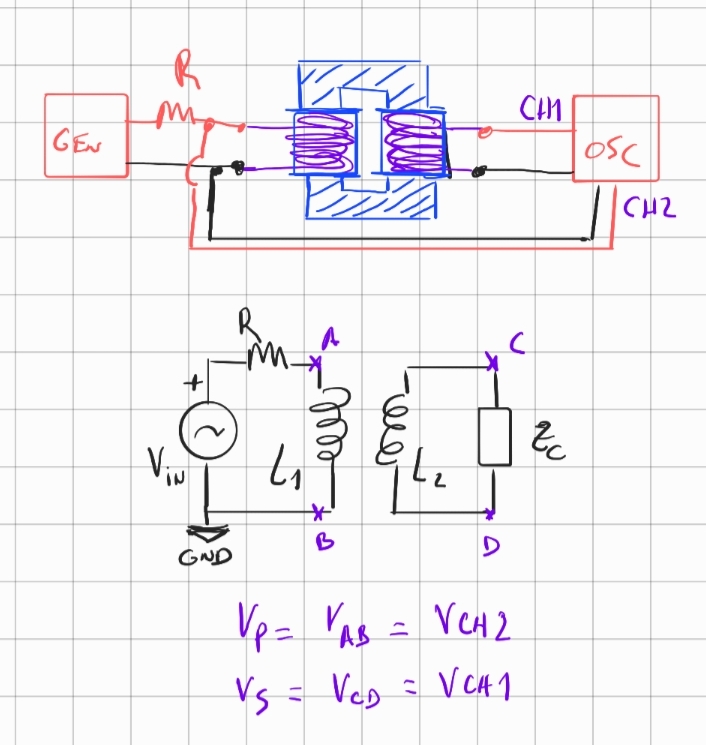 R
GEN
CH1
OSC
CH2
R
A
C
+
VIN
L1
L2
ZC
B
D
GND
VP = VAB = VCH2
VS = VCD = VCH1